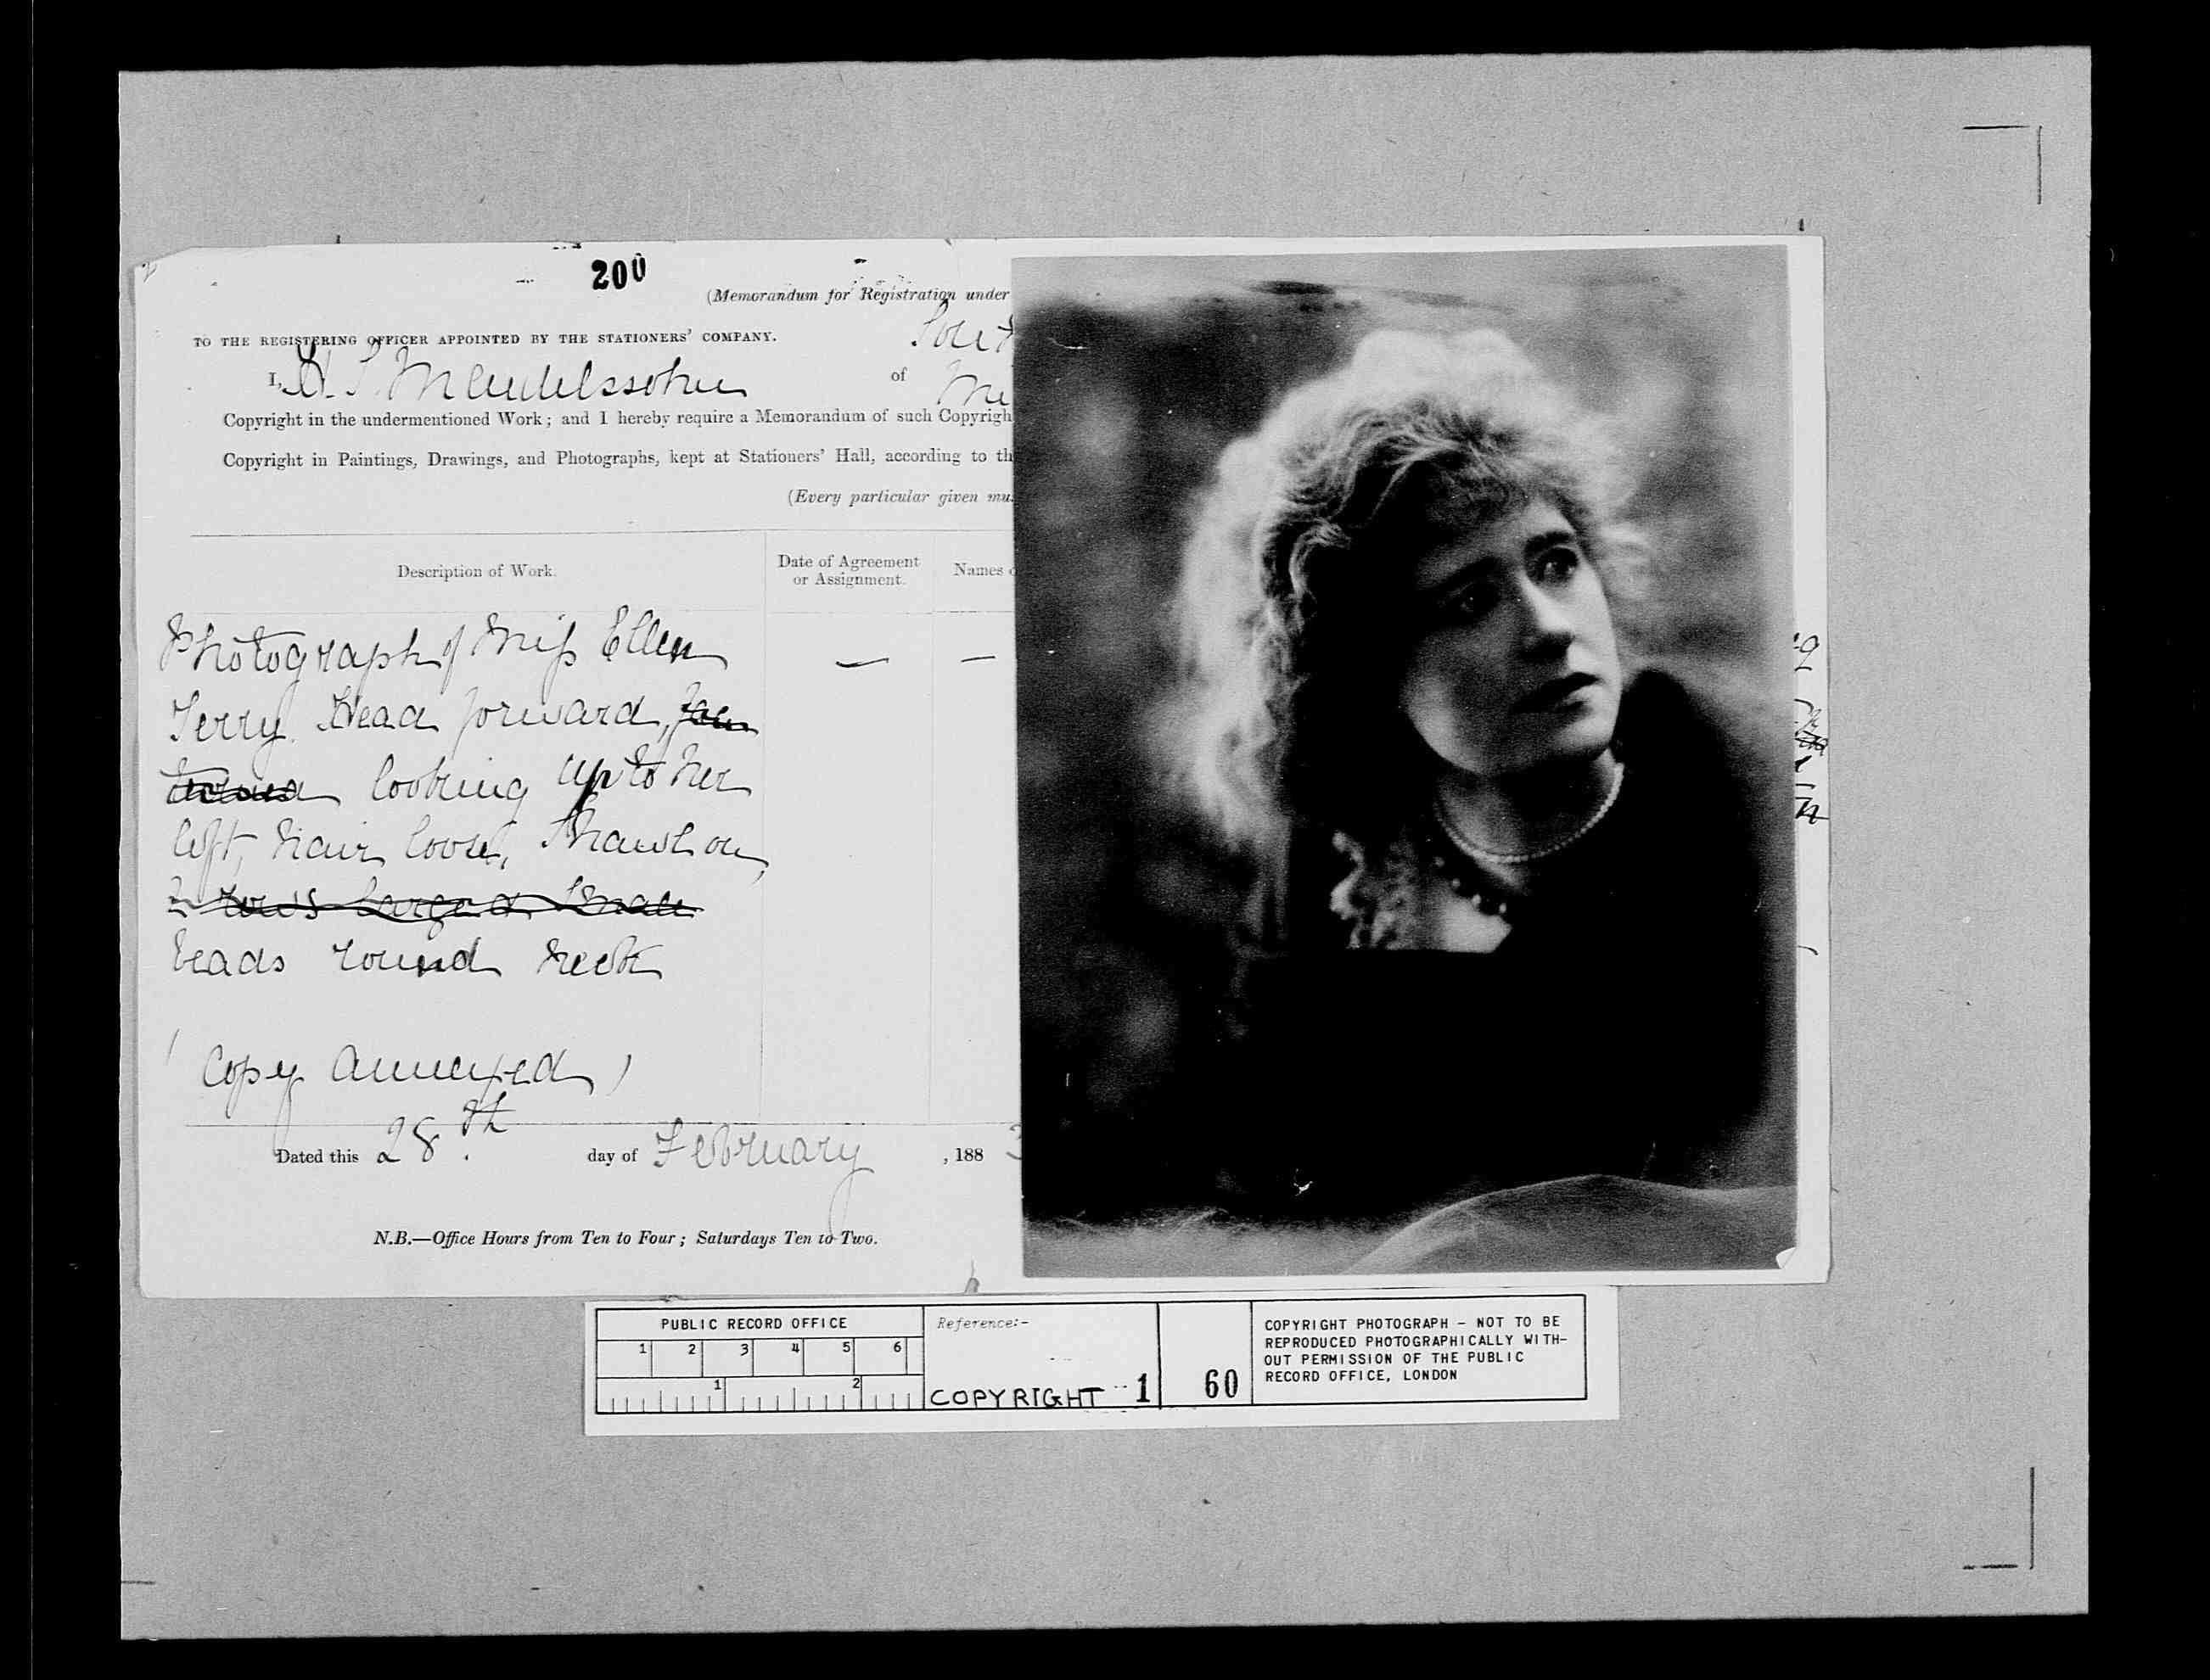 200
(Memorandum for Registration under
TO THE REGISTERING OFFICER APPOINTED BY THE STATIONERS' COMPANY.
I, H. S. Mendelssohn of
Copyright in the undermentioned Work; and I hereby require a Memorandum of such Copyrigh
Copyright in Paintings, Drawings, and Photographs, kept at Stationers' Hall, according to th
(Every particular given mu
Description of Work.
Date of Agreement
or Assignment.
Names
Photograph of Miss Ellen
Terry. Head forward,
looking up to her
left, hair loose, Shawl on,
2 rows large & small
beads round neck
(Copy annexed)
Dated this 28th day of February, 188
N.B.—Office Hours from Ten to Four; Saturdays Ten to Two.
PUBLIC RECORD OFFICE
1 2 3 4 5 6
1 2
Reference:-
COPYRIGHT 1
60
COPYRIGHT PHOTOGRAPH - NOT TO BE
REPRODUCED PHOTOGRAPHICALLY WITH-
OUT PERMISSION OF THE PUBLIC
RECORD OFFICE, LONDON